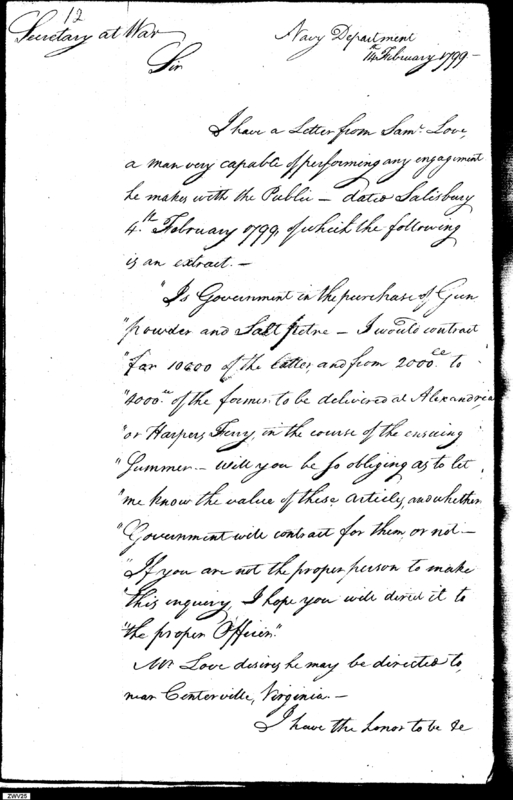 12
Secretary at War
Navy Department
14th February 1799 —
Sir
I have a Letter from Saml. Love,
a man very capable of performing any engagement
he makes with the Public — dated Salisbury
4th February 1799, of which the following
is an extract. —
"Is Government in the purchase of Gun
"powder and Salt petre — I would contract
"for 10000 of the latter and from 2000 to
"4000 of the former to be delivered at Alexandria
"or Harpers Ferry, in the course of the ensuing
"Summer. — Will you be so obliging as to let
"me know the value of these articles, and whether
"Government will contract for them, or not —
"If you are not the proper person to make
"this inquiry, I hope you will direct it to
"the proper Officer."
Mr. Love desires he may be directed to,
near Centerville, Virginia. —
I have the honor to be &c
ZWV25